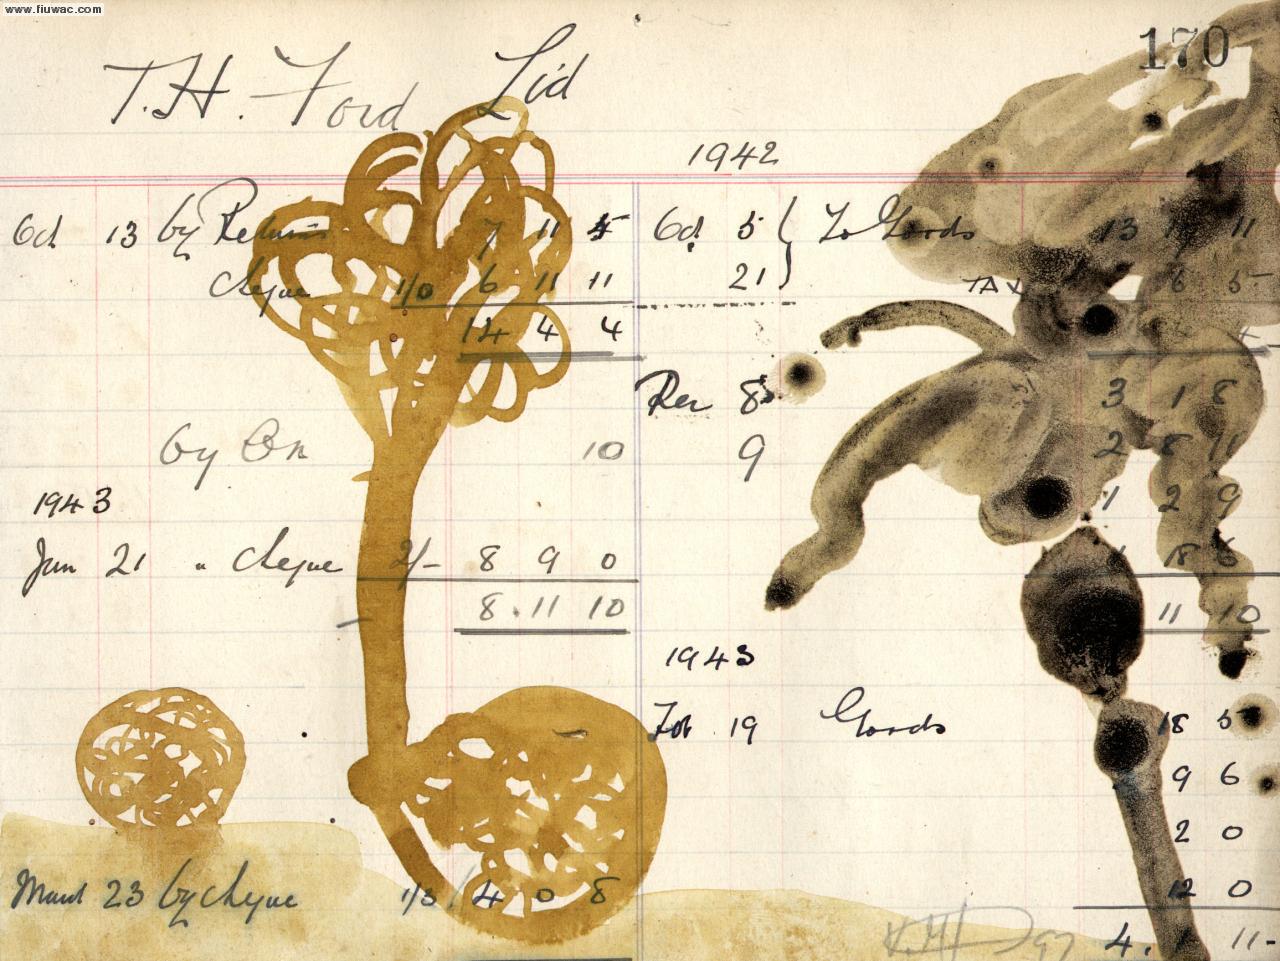 www.fiuwac.com
170
T.H. Ford Ltd
1942
Oct 13 by Returns 7 11 5
cheque 1/0 6 11 11
14 4 4
by Cn 10
1943
Jan 21 " cheque 2/- 8 9 0
8.11 10
March 23 by cheque 1/3 / 4 0 8
Oct 5 } To Goods 13 17 11
21 } TAX 6 5
3 1 8
Dec 8 2 8 11
9 1 2 9
18 6
11 10
1943
Feb 19 Goods 18 5
9 6
2 0
12 0
4. 1 11-